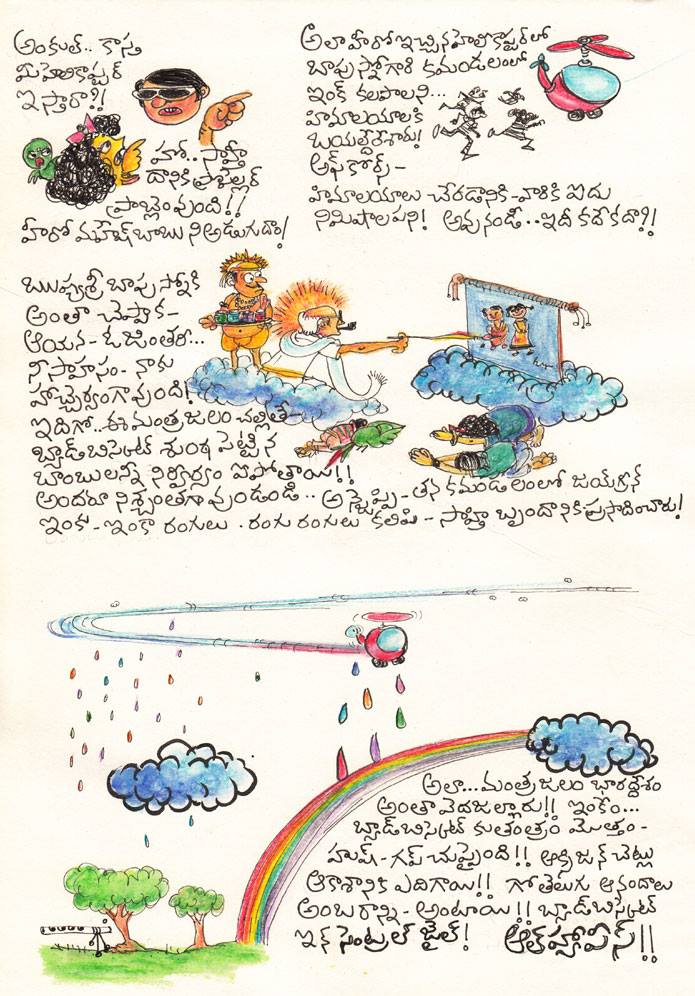 అంకుల్.. కాస్త
మీహెలికాప్టర్
ఇస్తారా?!
హా.. సాహితీ
దానికి ప్రొపెల్లర్
ప్రాబ్లెం వుంది!!
హీరో మహేష్ బాబు ని అడుగుదాం!
అలా హీరో ఇచ్చిన హెలికాప్టర్ లో
బాపు స్నోగారి కమండలంలో
ఇంక్ కలపాలని...
హిమాలయాలకి
బయల్దేరేశారు!
ఆఫ్ కోర్స్ -
హిమాలయాలు చేరడానికి - వారికి ఐదు
నిమిషాల పని! అవునండీ.. ఇదీ కథే కదా?!
ఋష్యశ్రీ బాపు స్నోకి
అంతా చెప్తాక -
ఆయన - ఓ జింతరో...
నీ సాహసం - నాకు
హాచ్చెర్యంగా వుంది!
ఇదిగో.. ఈ మంత్ర జలం చల్లితే -
బ్యాడ్ బిస్కెట్ శుంఠ పెట్టిన
బాంబులన్నీ నిర్వీర్యం ఐపోతాయి!!
అందరూ నిశ్చింతగా వుండండి.. అన్చెప్పి - తన కమండలంలో జయ్ గ్రీన్
ఇంకు - ఇంకా రంగులు. రంగు రంగులు కలిపి - సాహితీ బృందానికి ప్రసాదించారు!
అలా... మంత్ర జలం భారద్దేశం
అంతా వెదజల్లారు!! ఇంకేం...
బ్యాడ్ బిస్కెట్ కుతంత్రం మొత్తం -
హుష్ - గప్ చుప్పైంది!! ఆక్సిజన్ చెట్లు
ఆకాశానికి ఎదిగాయి!! గో తెలుగు ఆనందాలు
అంబరాన్ని - అంటాయి!! బ్యాడ్ బిస్కెట్
ఇన్ సెంట్రల్ జైల్! ఆల్ హ్యాపీస్!!